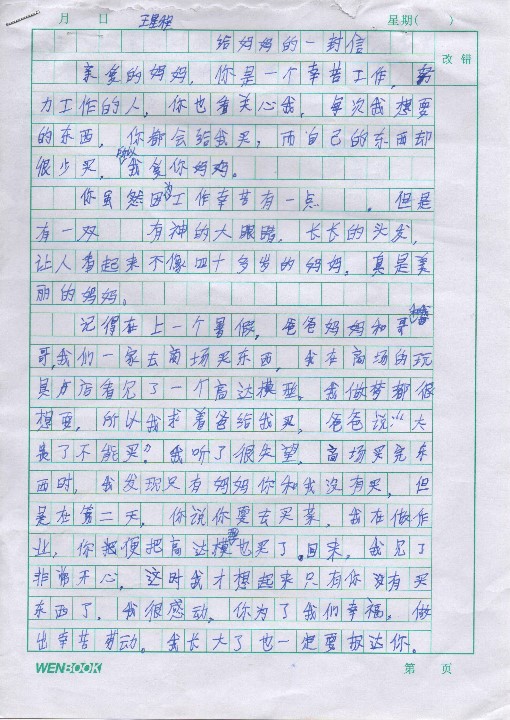 月 日 星期( )
给妈妈的一封信
改错
亲爱的妈妈,你是一个辛苦工作,努
力工作的人,你也看关心我,每次我想要
的东西,你都会给我买,而自己的东西却
很少买,所以我爱你妈妈。
你虽然因为工作辛苦有一点 。但是
有一双 有神的大眼睛,长长的头发,
让人看起来不像四十多岁的妈妈,真是美
丽的妈妈。
记得在上一个暑假,爸爸妈妈和哥
哥,我们一家去商场买东西,我在商场的玩
具店看见了一个高达模型。我做梦都很
想要,所以我求着爸给我买,爸爸说:“太
贵了不能买”我听了很失望,商场买完东
西时,我发现只有妈妈你和我没有买,但
是在第二天,你说你要去买菜,我在做作
业,你顺便把高达模型也买了回来,我见了
非常开心,这时我才想起来只有你没有买
东西了,我很感动,你为了我们幸福,做
出辛苦劳动。我长大了也一定要报达你。
WENBOOK
第 页